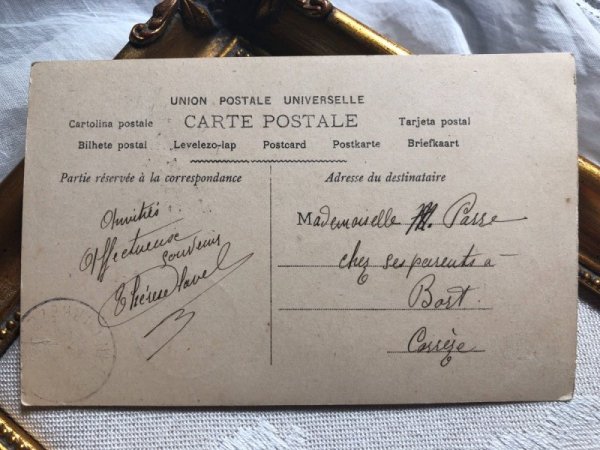 UNION POSTALE UNIVERSELLE
Cartolina postale CARTE POSTALE Tarjeta postal
Bilhete postal Levelezo-lap Postcard Postkarte Briefkaart
Partie réservée à la correspondance
Amitiés
Affectueuse
souvenir
Thérèse
Adresse du destinataire
Mademoiselle M. Parre
chez ses parents à
Bort.
Corrèze